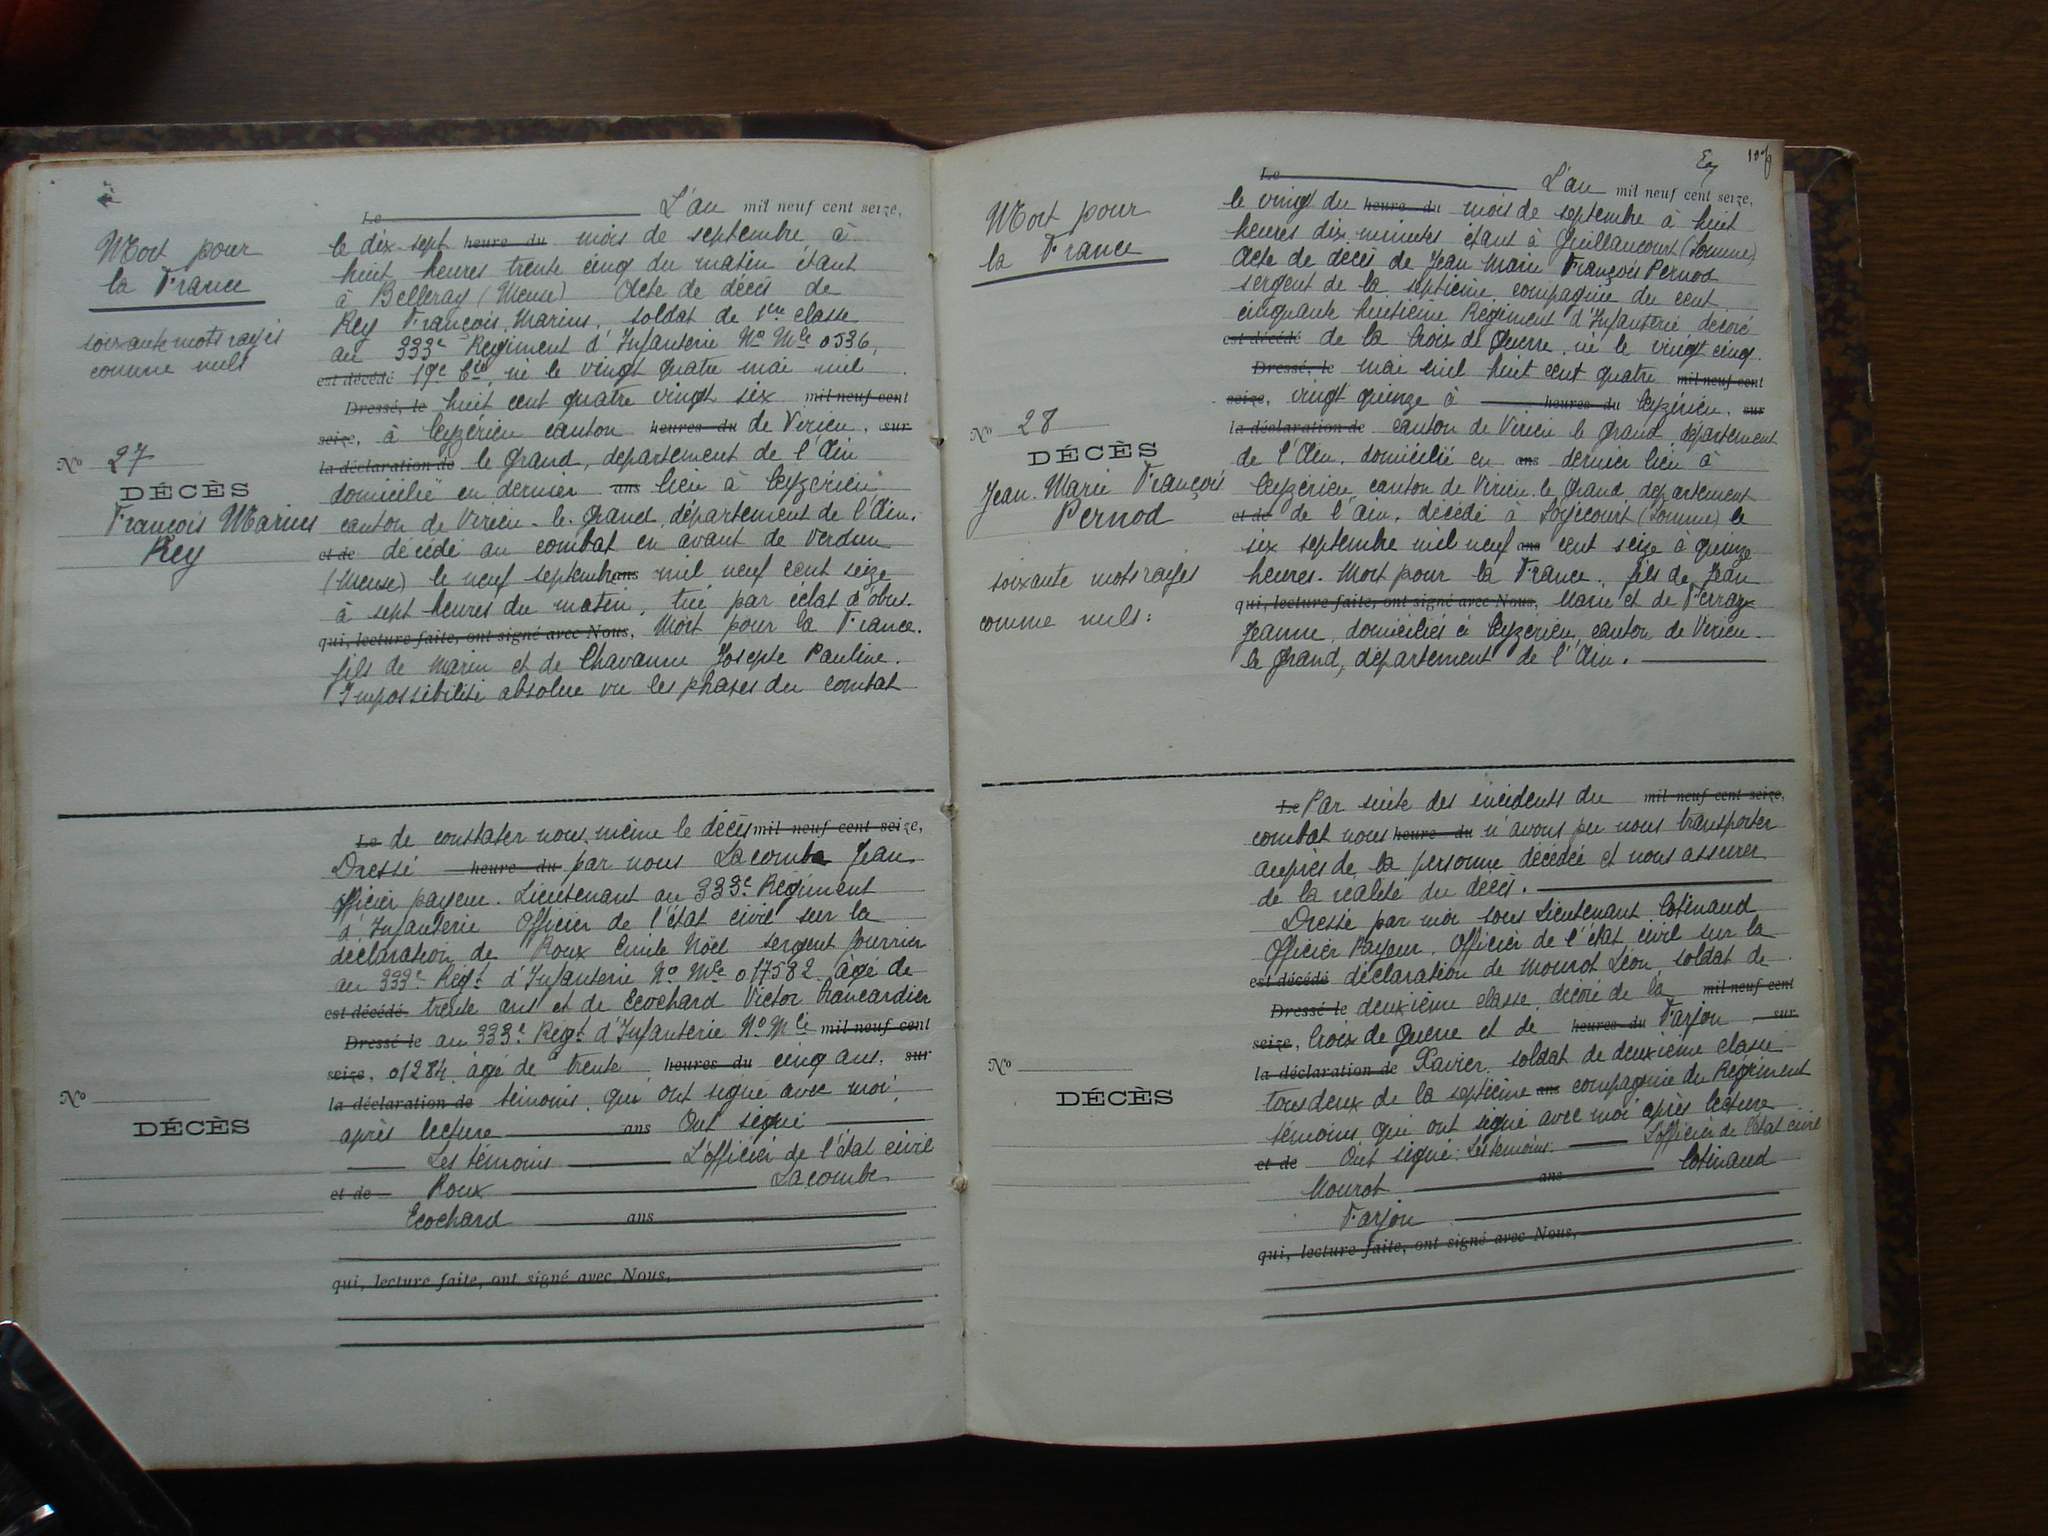 Mort pour
la France
soixante mots rayés
comme nuls
N° 27
DÉCÈS
François Marius
Rey
Le L'an mil neuf cent seize,
le dix-sept heure du mois de septembre à
huit heures trente cinq du matin étant
à Belleray (Meuse) Acte de décès de
Rey François, Marius, soldat de 1ère classe
au 333e Régiment d'Infanterie No Mle 0536,
est décédé 19e Cie, né le vingt quatre mai mil
Dressé, le huit cent quatre vingt six mil neuf cent
seize, à Ceyzérieu canton heures du de Virieu, sur
la déclaration de le grand, département de l'Ain
domicilié en dernier ans lieu à Ceyzérieu
canton de Virieu-le-grand, département de l'Ain,
et de décédé au combat en avant de Verdun
(Meuse) le neuf septembre ans mil neuf cent seize
à sept heures du matin, tué par éclat d'obus.
qui, lecture faite, ont signé avec Nous, Mort pour la France.
fils de Marin et de Chavanne Josepte Pauline.
Impossibilité absolue vu les phases du combat
N°
DÉCÈS
Le de constater nous même le décès mil neuf cent seize,
Dressé heure du par nous Lacombe Jean,
officier payeur. Lieutenant au 333e Régiment
d'Infanterie Officier de l'état civil sur la
déclaration de Roux Emile Noël sergent fourrier
au 333e Régt d'Infanterie No Mle 017582 âgé de
est décédé, trente ans et de Ecochard Victor brancardier
Dressé le au 333e Régt d'Infanterie No Mle mil neuf cent
seize, 01284, âgé de trente heures du cinq ans, sur
la déclaration de témoins, qui ont signé avec moi,
après lecture ans Ont signé
Les témoins L'officier de l'état civil
et de Roux Lacombe
Ecochard ans
qui, lecture faite, ont signé avec Nous,
Mort pour
la France
N° 28
DÉCÈS
Jean-Marie François
Pernod
soixante mots rayés
comme nuls:
Le L'an mil neuf cent seize,
le vingt du heure du mois de septembre à huit
heures dix minutes étant à Guillaucourt (Somme)
Acte de décès de Jean Marie François Pernod
sergent de la septième compagnie du cent
cinquante huitième Régiment d'Infanterie décoré
est décédé de la Croix de Guerre, né le vingt cinq
Dressé, le mai mil huit cent quatre mil neuf cent
seize, vingt quinze à heures du Ceyzérieu, sur
la déclaration de canton de Virieu le grand, département
de l'Ain, domicilié en ans dernier lieu à
Ceyzérieu, canton de Virieu le grand, département
et de de l'ain, décédé à Soyécourt (Somme) le
six septembre mil neuf ans cent seize à quinze
heures. Mort pour la France, fils de Jean
qui, lecture faite, ont signé avec Nous, Marie et de
Jeanne, domiciliés à Ceyzérieu, canton de Virieu-
le grand, département de l'Ain.
N°
DÉCÈS
Le Par suite des incidents du mil neuf cent seize,
combat nous heure du n'avons pu nous transporter
auprès de la personne décédée et nous assurer
de la réalité du décès.
Dressé par moi sous Lieutenant Cotinaud
Officier Payeur, Officier de l'état civil sur la
est décédé déclaration de Mourot Léon soldat de
Dressé le deuxième classe, décoré de la mil neuf cent
seize, Croix de Guerre et de heures du Farjon sur
la déclaration de Xavier, soldat de deuxième classe
tous deux de la septième ans compagnie du Régiment
témoins qui ont signé avec moi après lecture
et de Ont signé: Les témoins. L'officier de l'état civil
Mourot ans Cotinaud
Farjon
qui, lecture faite, ont signé avec Nous,